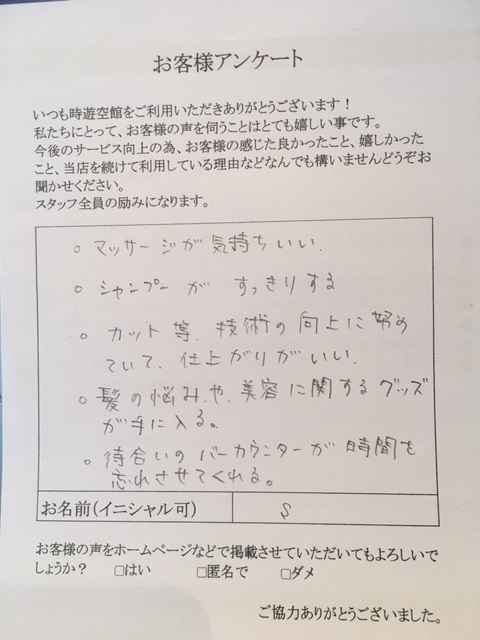 お客様アンケート
いつも時遊空館をご利用いただきありがとうございます！
私たちにとって、お客様の声を伺うことはとても嬉しい事です。
今後のサービス向上の為、お客様の感じた良かったこと、嬉しかった
こと、当店を続けて利用している理由などなんでも構いませんどうぞお
聞かせください。
スタッフ全員の励みになります。
○ マッサージが気持ちいい.
○ シャンプーが すっきりする
○ カット等. 技術の向上に努め
ていて. 仕上がりがいい.
○ 髪の悩み.や.美容に関するグッズ
が手に入る。
○ 待合いのバーカウンターが時間を
忘れさせてくれる。
お名前(イニシャル可) S
お客様の声をホームページなどで掲載させていただいてもよろしいで
しょうか？ □はい □匿名で □ダメ
ご協力ありがとうございました。